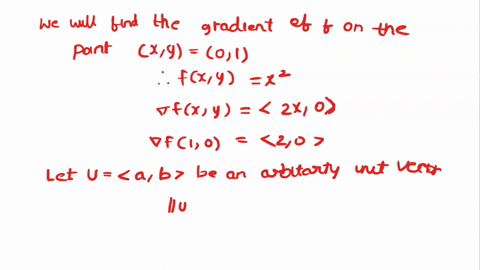 we will find the gradient of f on the
point (x,y) = (0,1)
∴ f(x,y) = x²
∇f(x,y) = < 2x, 0>
∇f(1,0) = <2,0 >
Let U = <a, b> be an arbitarty unit vector
||u